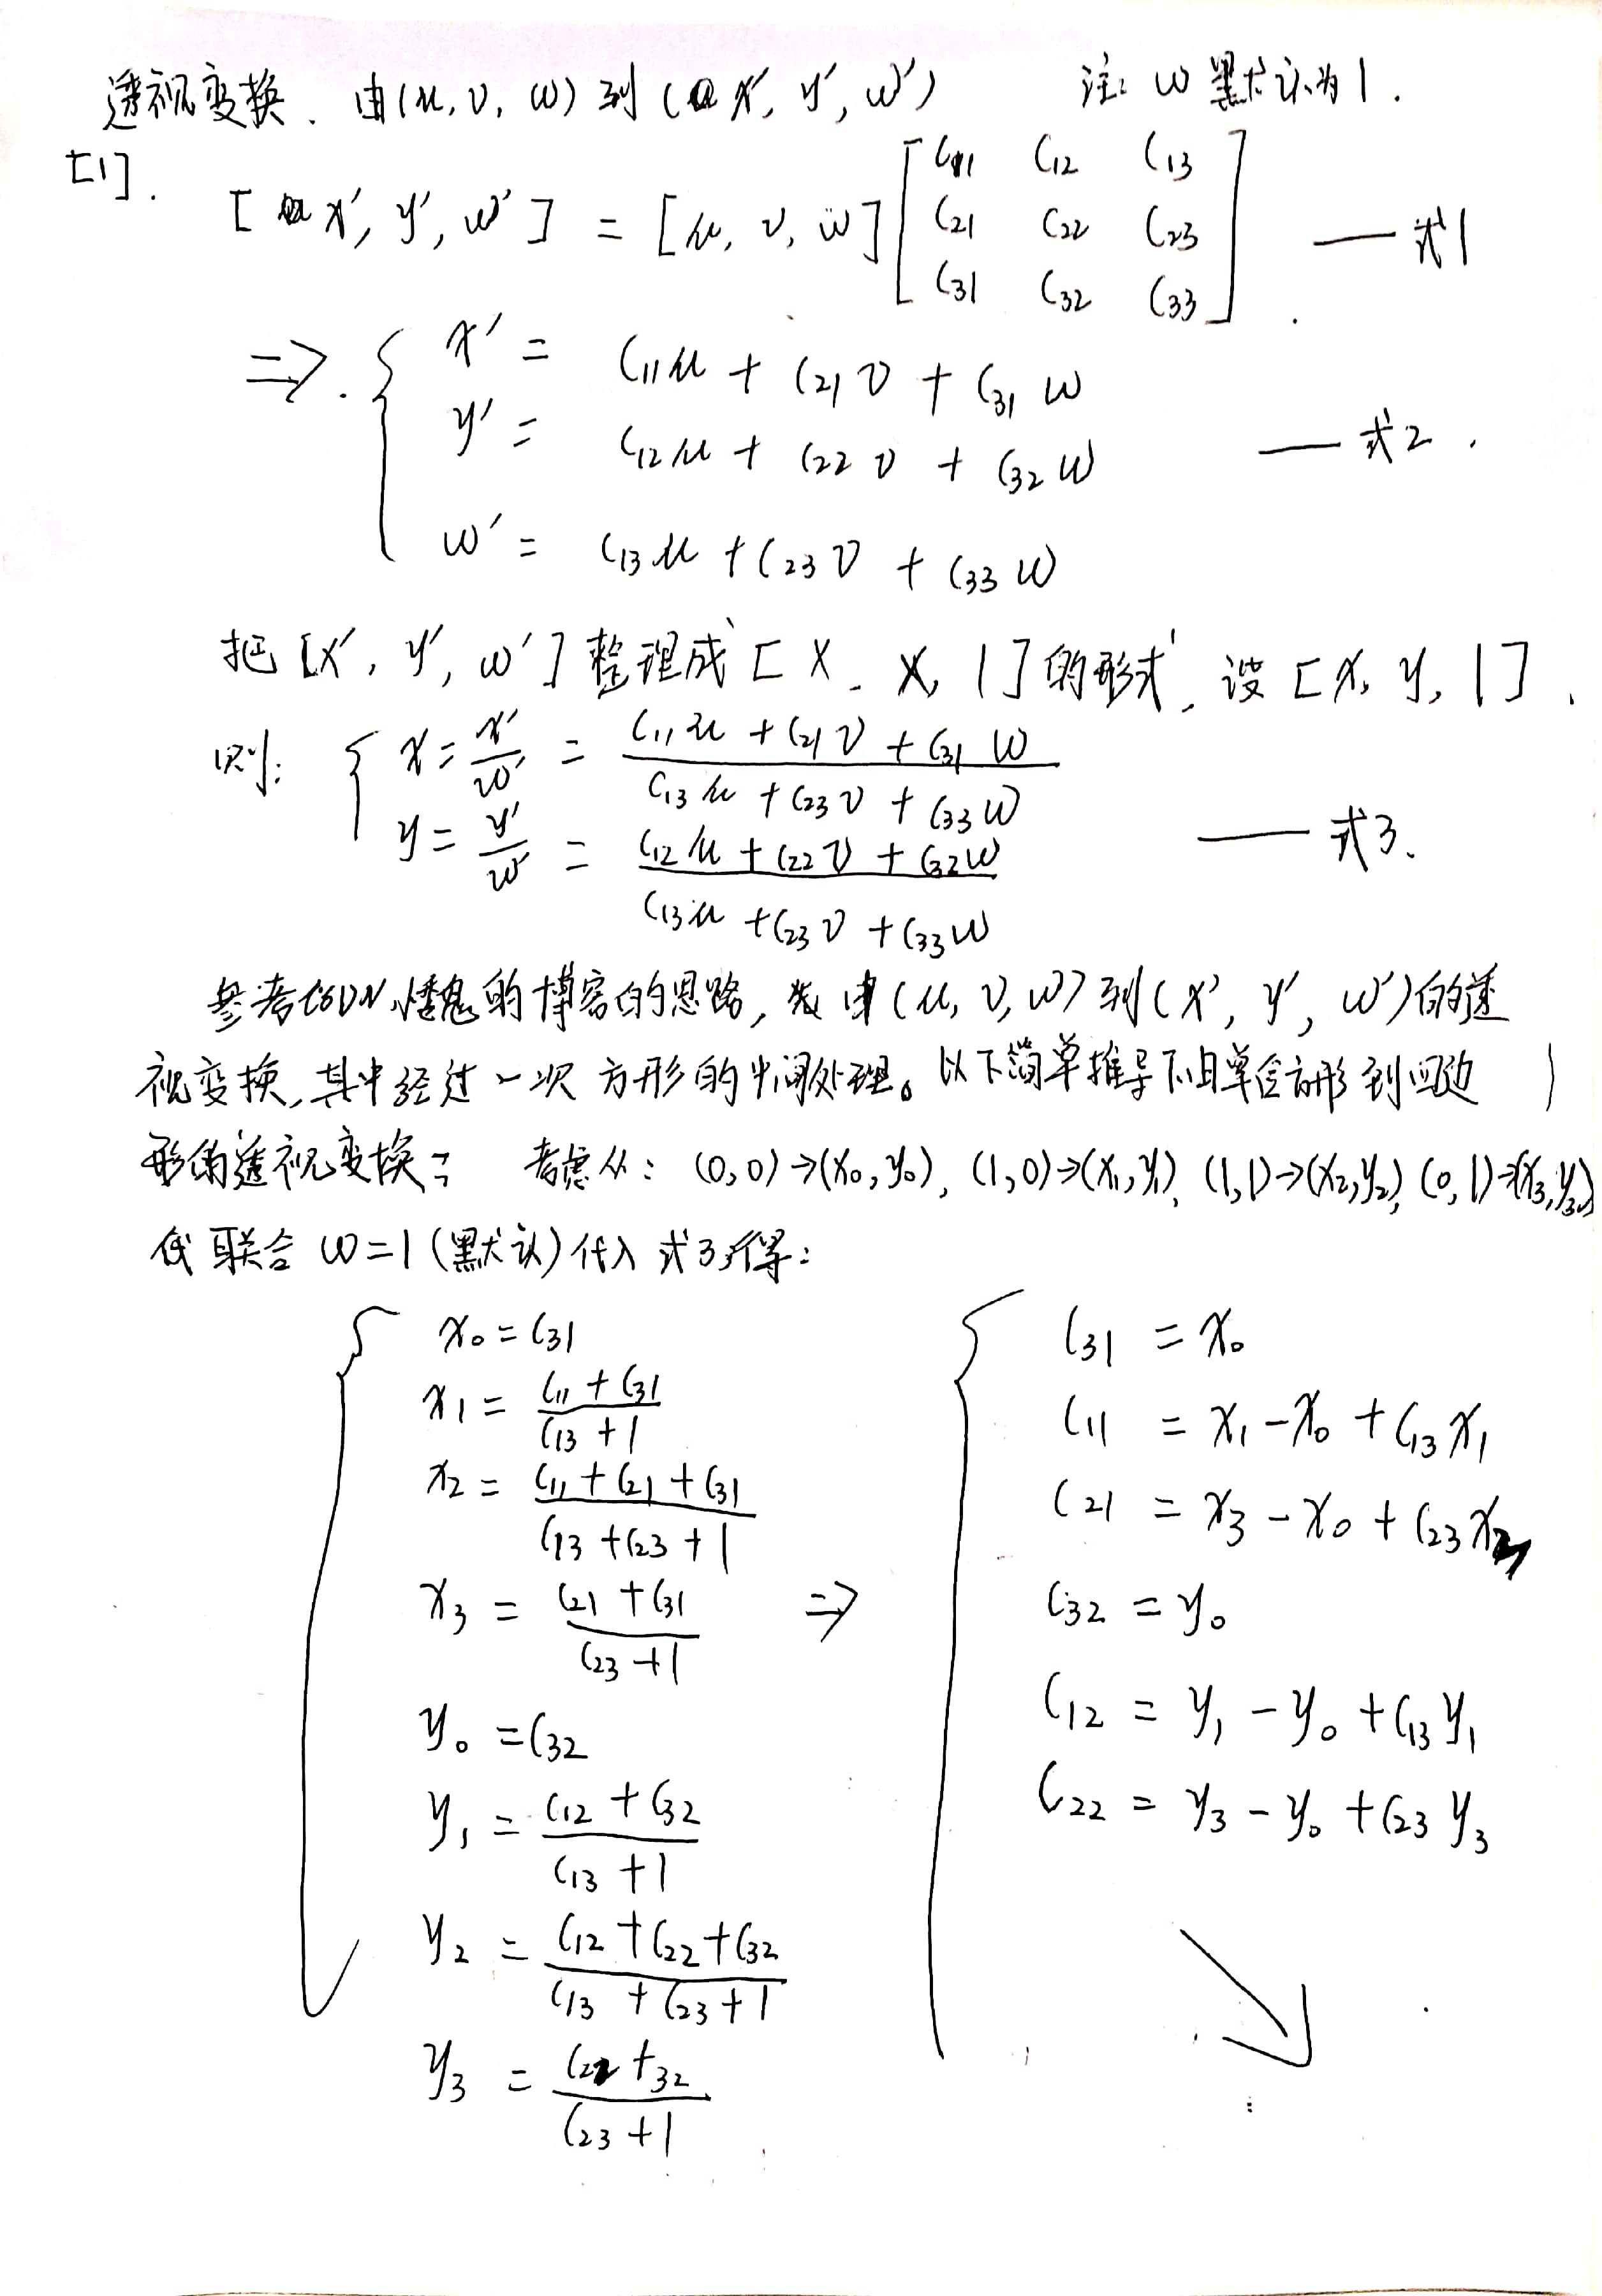 透视变换. 由(u, v, w) 到 (x', y', w') 注: w 默认为1.
[1].
[x', y', w'] = [u, v, w] [C11 C12 C13
C21 C22 C23
C31 C32 C33] —— 式1
=> { x' = C11u + C21v + C31w
y' = C12u + C22v + C32w —— 式2.
w' = C13u + C23v + C33w
把 [x', y', w'] 整理成 [X, X, 1] 的形式, 设 [x, y, 1].
则: { x = x'/w' = (C11u + C21v + C31w)/(C13u + C23v + C33w)
y = y'/w' = (C12u + C22v + C32w)/(C13u + C23v + C33w) —— 式3.
参考CSDN 的博客的思路, 由(u, v, w) 到 (x', y', w')的透
视变换, 其中经过一次方形的中间处理。以下简单推导下 方形到四边
形的透视变换: 考虑从: (0,0)→(x0,y0), (1,0)→(x1,y1), (1,1)→(x2,y2), (0,1)→(x3,y3)
联合 w=1 (默认) 代入 式3 得:
{ x0 = C31
x1 = (C11 + C31)/(C13 + 1)
x2 = (C11 + C21 + C31)/(C13 + C23 + 1)
x3 = (C21 + C31)/(C23 + 1)
y0 = C32
y1 = (C12 + C32)/(C13 + 1)
y2 = (C12 + C22 + C32)/(C13 + C23 + 1)
y3 = (C22 + 32)/(C23 + 1)
=> { C31 = x0
C11 = x1 - x0 + C13x1
C21 = x3 - x0 + C23x3
C32 = y0
C12 = y1 - y0 + C13y1
C22 = y3 - y0 + C23y3